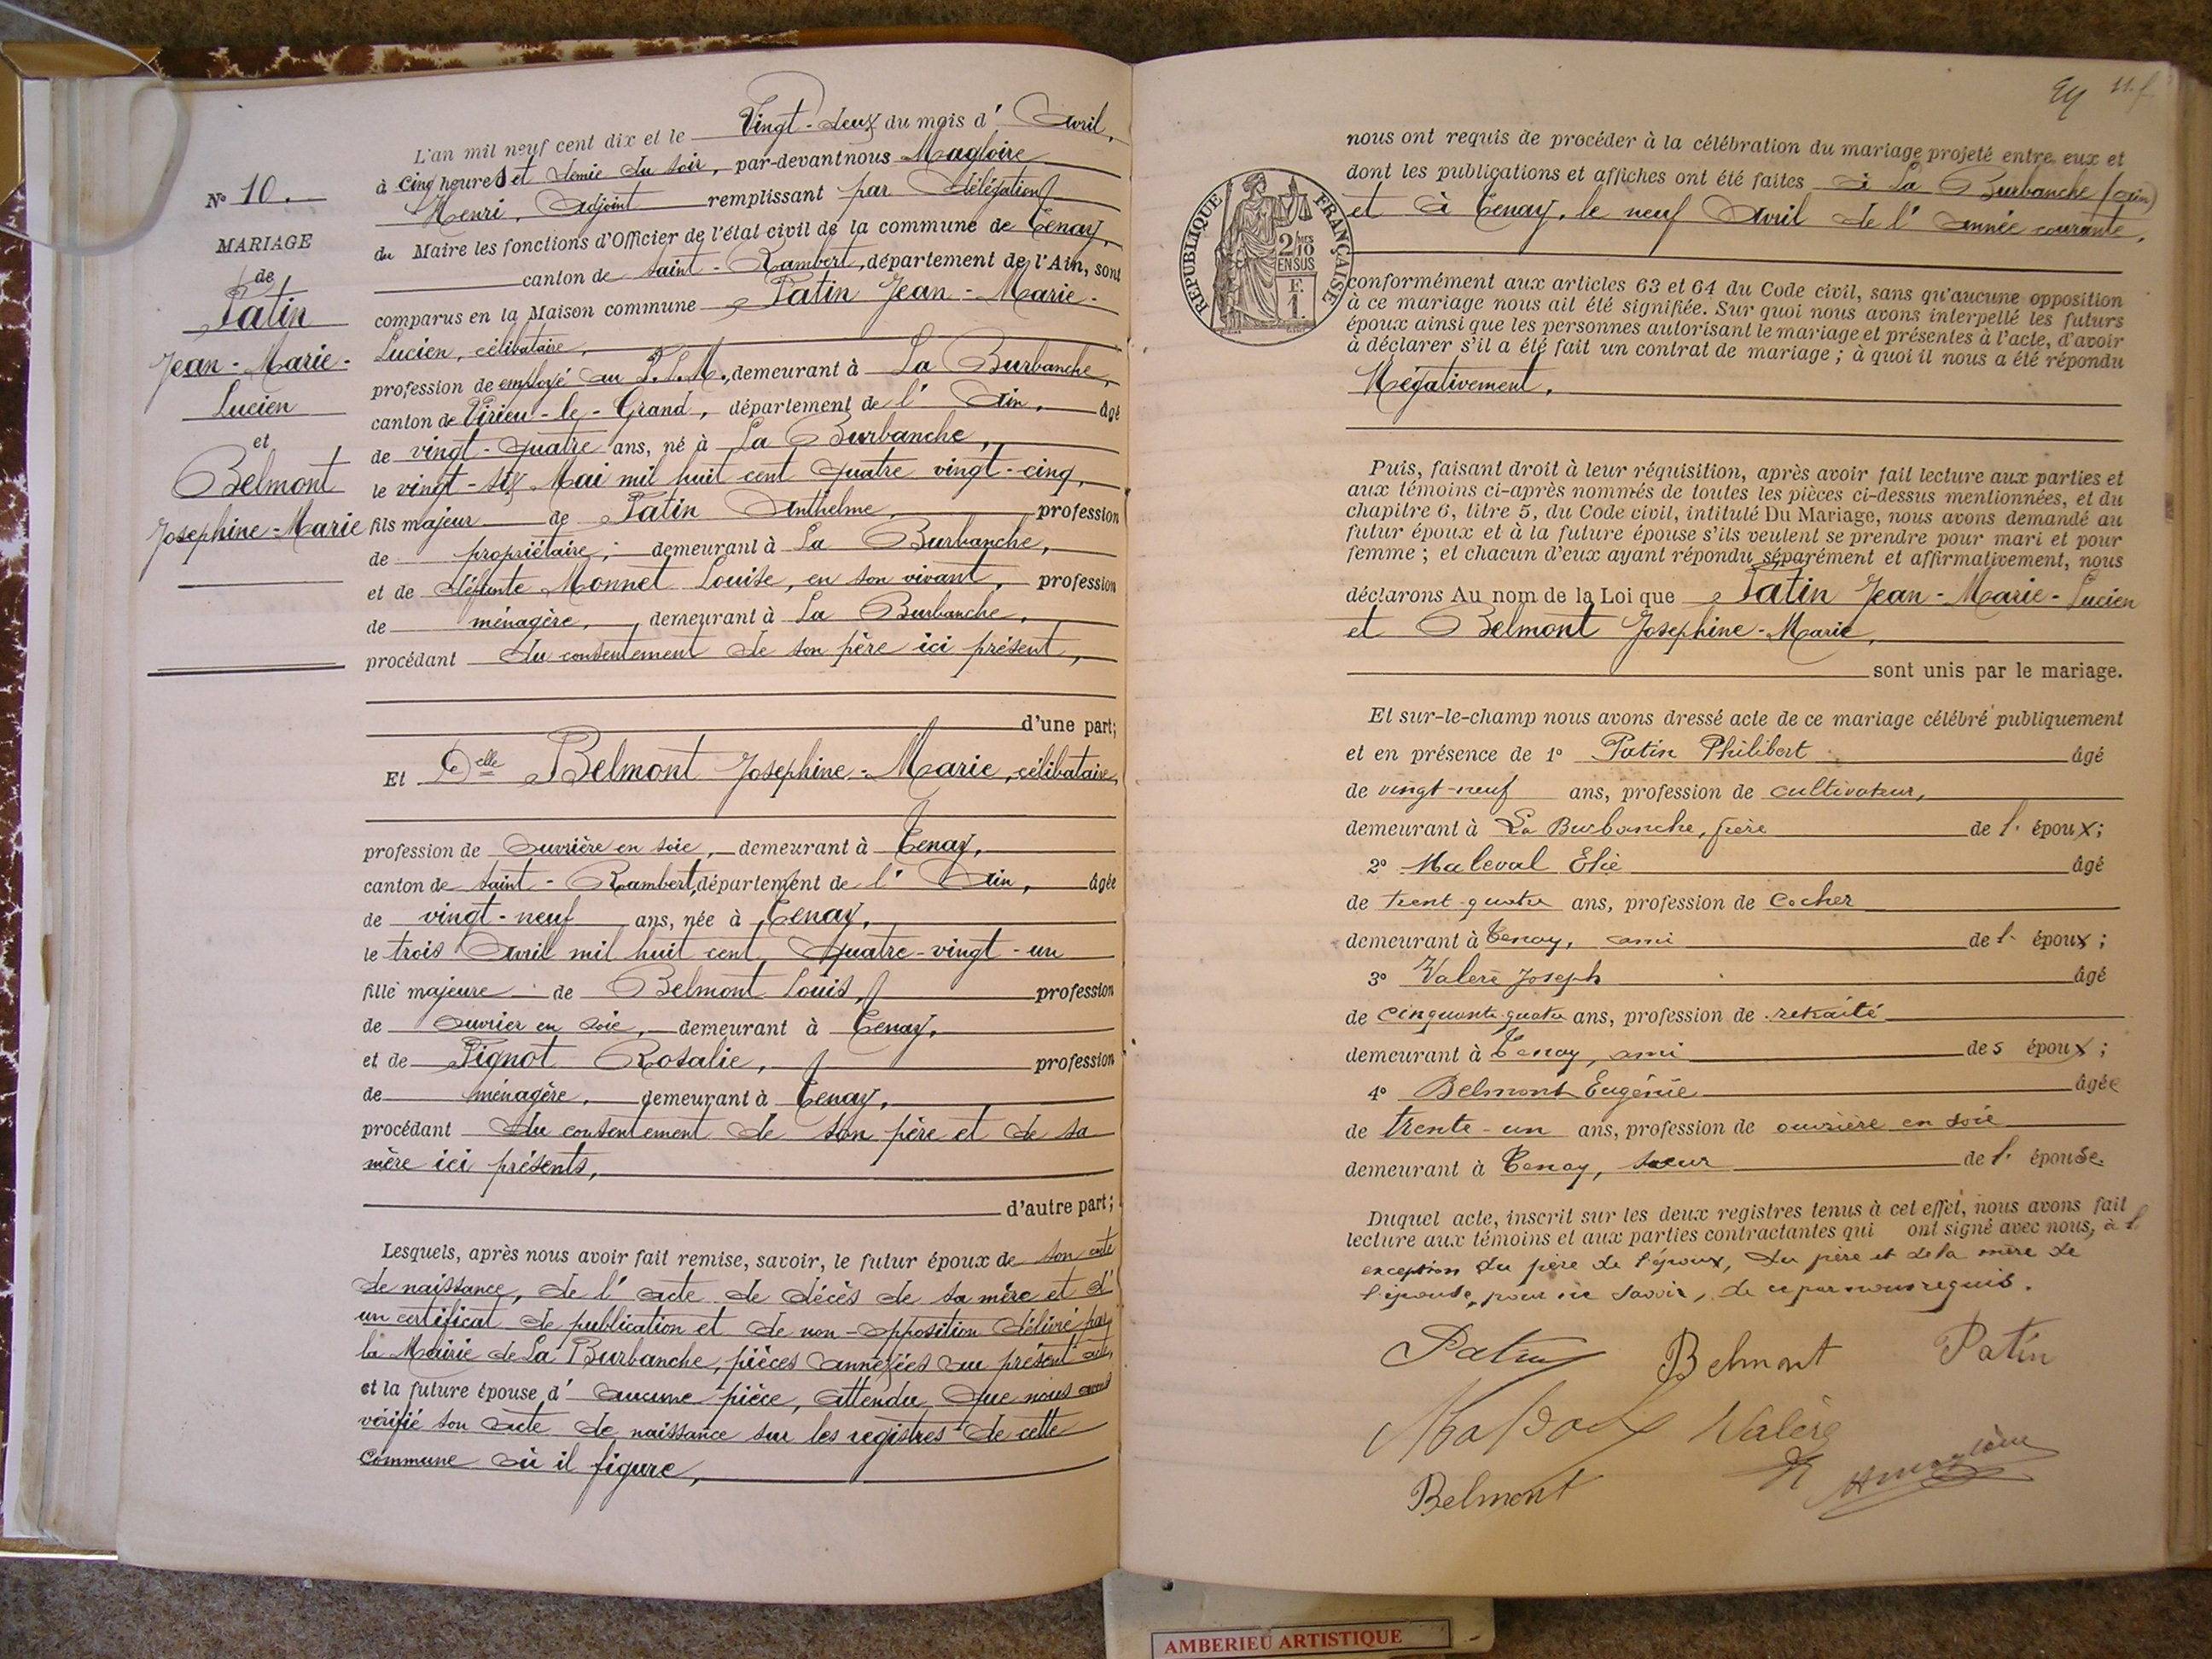 N° 10.
MARIAGE
de
Patin
Jean-Marie-
Lucien
et
Belmont
Josephine-Marie
L'an mil neuf cent dix et le Vingt-deux du mois d' Avril,
à cinq heures et demie du soir, par-devant nous Magloire
Henri, Adjoint remplissant par délégation
du Maire les fonctions d'Officier de l'état civil de la commune de Tenay,
canton de Saint-Rambert, département de l'Ain, sont
comparus en la Maison commune Patin Jean-Marie-
Lucien, célibataire,
profession de employé au P.L.M., demeurant à La Burbanche,
canton de Virieu-le-Grand, département de l' Ain, âgé
de vingt-quatre ans, né à La Burbanche,
le vingt-six Mai mil huit cent quatre vingt-cinq,
fils majeur de Patin Anthelme, profession
de propriétaire, demeurant à La Burbanche,
et de défunte Monnet Louise, en son vivant, profession
de ménagère, demeurant à La Burbanche,
procédant du consentement de son père ici présent,
d'une part;
Et Delle Belmont Josephine-Marie, célibataire,
profession de ouvrière en soie, demeurant à Tenay,
canton de Saint-Rambert, département de l' Ain, âgée
de vingt-neuf ans, née à Tenay,
le trois Avril mil huit cent quatre-vingt-un
fille majeure de Belmont Louis, profession
de ouvrier en soie, demeurant à Tenay,
et de Pignot Rosalie, profession
de ménagère, demeurant à Tenay,
procédant du consentement de son père et de sa
mère ici présents,
d'autre part;
Lesquels, après nous avoir fait remise, savoir, le futur époux de son acte
de naissance, de l' acte de décès de sa mère et d'
un certificat de publication et de non-opposition délivré par
la Mairie de La Burbanche, pièces annexées au présent acte,
et la future épouse d' aucune pièce, attendu que nous avons
vérifié son acte de naissance sur les registres de cette
commune où il figure,
11. f.
RÉPUBLIQUE FRANÇAISE
2/10 MES
EN SUS
F.
1.
nous ont requis de procéder à la célébration du mariage projeté entre eux et
dont les publications et affiches ont été faites à La Burbanche (Ain)
et à Tenay, le neuf Avril de l' année courante,
conformément aux articles 63 et 64 du Code civil, sans qu'aucune opposition
à ce mariage nous ait été signifiée. Sur quoi nous avons interpellé les futurs
époux ainsi que les personnes autorisant le mariage et présentes à l'acte, d'avoir
à déclarer s'il a été fait un contrat de mariage ; à quoi il nous a été répondu
Négativement.
Puis, faisant droit à leur réquisition, après avoir fait lecture aux parties et
aux témoins ci-après nommés de toutes les pièces ci-dessus mentionnées, et du
chapitre 6, litre 5, du Code civil, intitulé Du Mariage, nous avons demandé au
futur époux et à la future épouse s'ils veulent se prendre pour mari et pour
femme ; et chacun d'eux ayant répondu séparément et affirmativement, nous
déclarons Au nom de la Loi que Patin Jean-Marie-Lucien
et Belmont Josephine-Marie,
sont unis par le mariage.
Et sur-le-champ nous avons dressé acte de ce mariage célébré publiquement
et en présence de 1° Patin Philibert âgé
de vingt-neuf ans, profession de cultivateur,
demeurant à La Burbanche, frère de l' époux;
2° Maleval Elie âgé
de trent-quatre ans, profession de Cocher
demeurant à Tenay, ami de l' époux;
3° Valere Joseph âgé
de cinquante-quatre ans, profession de retraité
demeurant à Tenay, ami des époux;
4° Belmont Eugénie âgée
de trente-un ans, profession de ouvrière en soie
demeurant à Tenay, sœur de l' épouse.
Duquel acte, inscrit sur les deux registres tenus à cet effet, nous avons fait
lecture aux témoins et aux parties contractantes qui ont signé avec nous, à l'
exception du père de l'époux, du père et de la mère de
l'épouse, pour ne savoir, de ce par nous requis.
Patin Belmont Patin
Valère
Belmont
AMBERIEU ARTISTIQUE